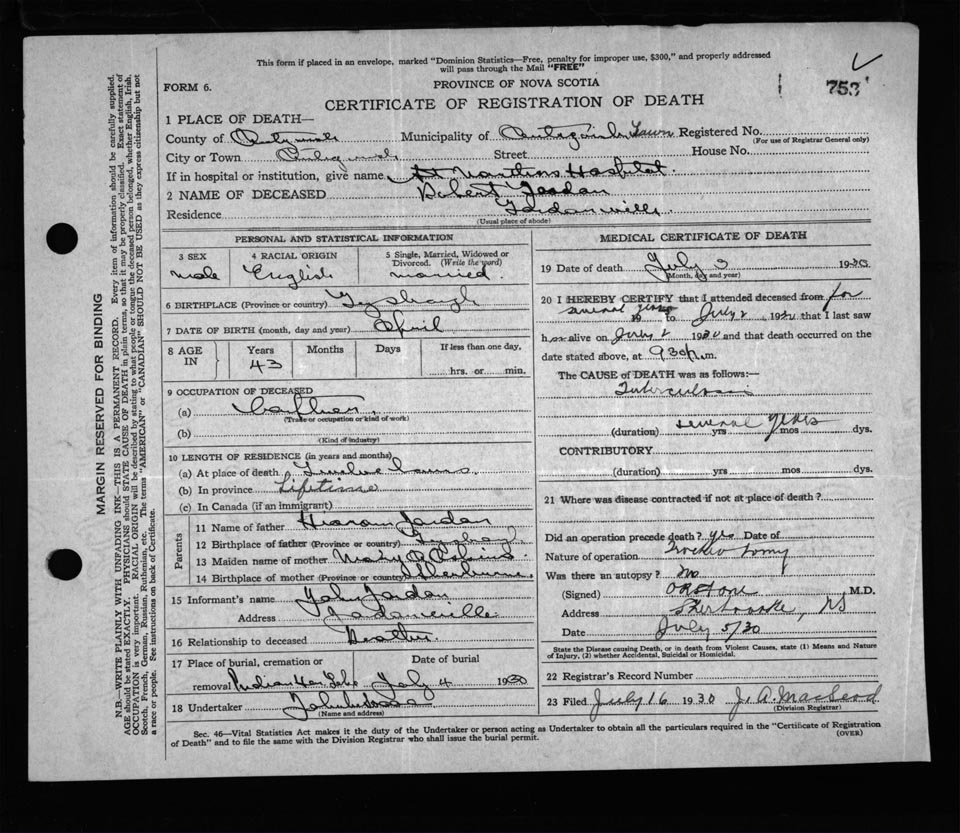 This form if placed in an envelope, marked "Dominion Statistics—Free, penalty for improper use, $300," and properly addressed
will pass through the Mail "FREE"
FORM 6.
PROVINCE OF NOVA SCOTIA
753
CERTIFICATE OF REGISTRATION OF DEATH
1 PLACE OF DEATH—
County of Antigonish Municipality of Antigonish Town Registered No.
(For use of Registrar General only)
City or Town Antigonish Street House No.
If in hospital or institution, give name St Marthas Hospital
2 NAME OF DECEASED Robert Jordan
Residence Jordanville
(Usual place of abode)
PERSONAL AND STATISTICAL INFORMATION
3 SEX 4 RACIAL ORIGIN 5 Single, Married, Widowed or Divorced. (Write the word)
male English married
6 BIRTHPLACE (Province or country)
7 DATE OF BIRTH (month, day and year) April
8 AGE IN Years Months Days If less than one day,
43 hrs. or min.
9 OCCUPATION OF DECEASED
(a)
(Trade or occupation or kind of work)
(b)
(Kind of industry)
10 LENGTH OF RESIDENCE (in years and months)
(a) At place of death
(b) In province Lifetime
(c) In Canada (if an immigrant)
Parents
11 Name of father Jordan
12 Birthplace of father (Province or country)
13 Maiden name of mother Mary
14 Birthplace of mother (Province or country)
15 Informant's name John Jordan
Address Jordanville
16 Relationship to deceased Brother
17 Place of burial, cremation or removal Date of burial
Indian Har Lake July 4 1930
18 Undertaker
(Name and address)
MEDICAL CERTIFICATE OF DEATH
19 Date of death July 3 1930
(Month, day and year)
20 I HEREBY CERTIFY that I attended deceased from for
several years 19 to July 2 1930 that I last saw
h alive on July 2 1930 and that death occurred on the
date stated above, at 930 p.m.
The CAUSE of DEATH was as follows:—
Tuberculosis
several years
(duration) yrs mos dys.
CONTRIBUTORY
(duration) yrs mos dys.
21 Where was disease contracted if not at place of death?
Did an operation precede death? yes Date of
Nature of operation
Was there an autopsy? no
(Signed) M.D.
Address Sherbrooke, NS
Date July 5/30
State the Disease causing Death, or in death from Violent Causes, state (1) Means and Nature
of Injury, (2) whether Accidental, Suicidal or Homicidal.
22 Registrar's Record Number
23 Filed July 16 1930 J. A. MacLeod
(Division Registrar)
Sec. 46—Vital Statistics Act makes it the duty of the Undertaker or person acting as Undertaker to obtain all the particulars required in the "Certificate of Registration
of Death" and to file the same with the Division Registrar who shall issue the burial permit.
(OVER)
MARGIN RESERVED FOR BINDING
N.B.—WRITE PLAINLY WITH UNFADING INK—THIS IS A PERMANENT RECORD. Every item of information should be carefully supplied.
AGE should be stated EXACTLY. PHYSICIANS should STATE CAUSE OF DEATH in plain terms, so that it may be properly classified. Exact statement of
OCCUPATION is very important. RACIAL ORIGIN will be described by stating to what people or tongue the deceased person belonged, whether English, Irish,
Scotch, French, German, Russian, Ruthenian, etc. The terms "AMERICAN" or "CANADIAN" SHOULD NOT BE USED as they express citizenship but not
a race or people. See instructions on back of Certificate.